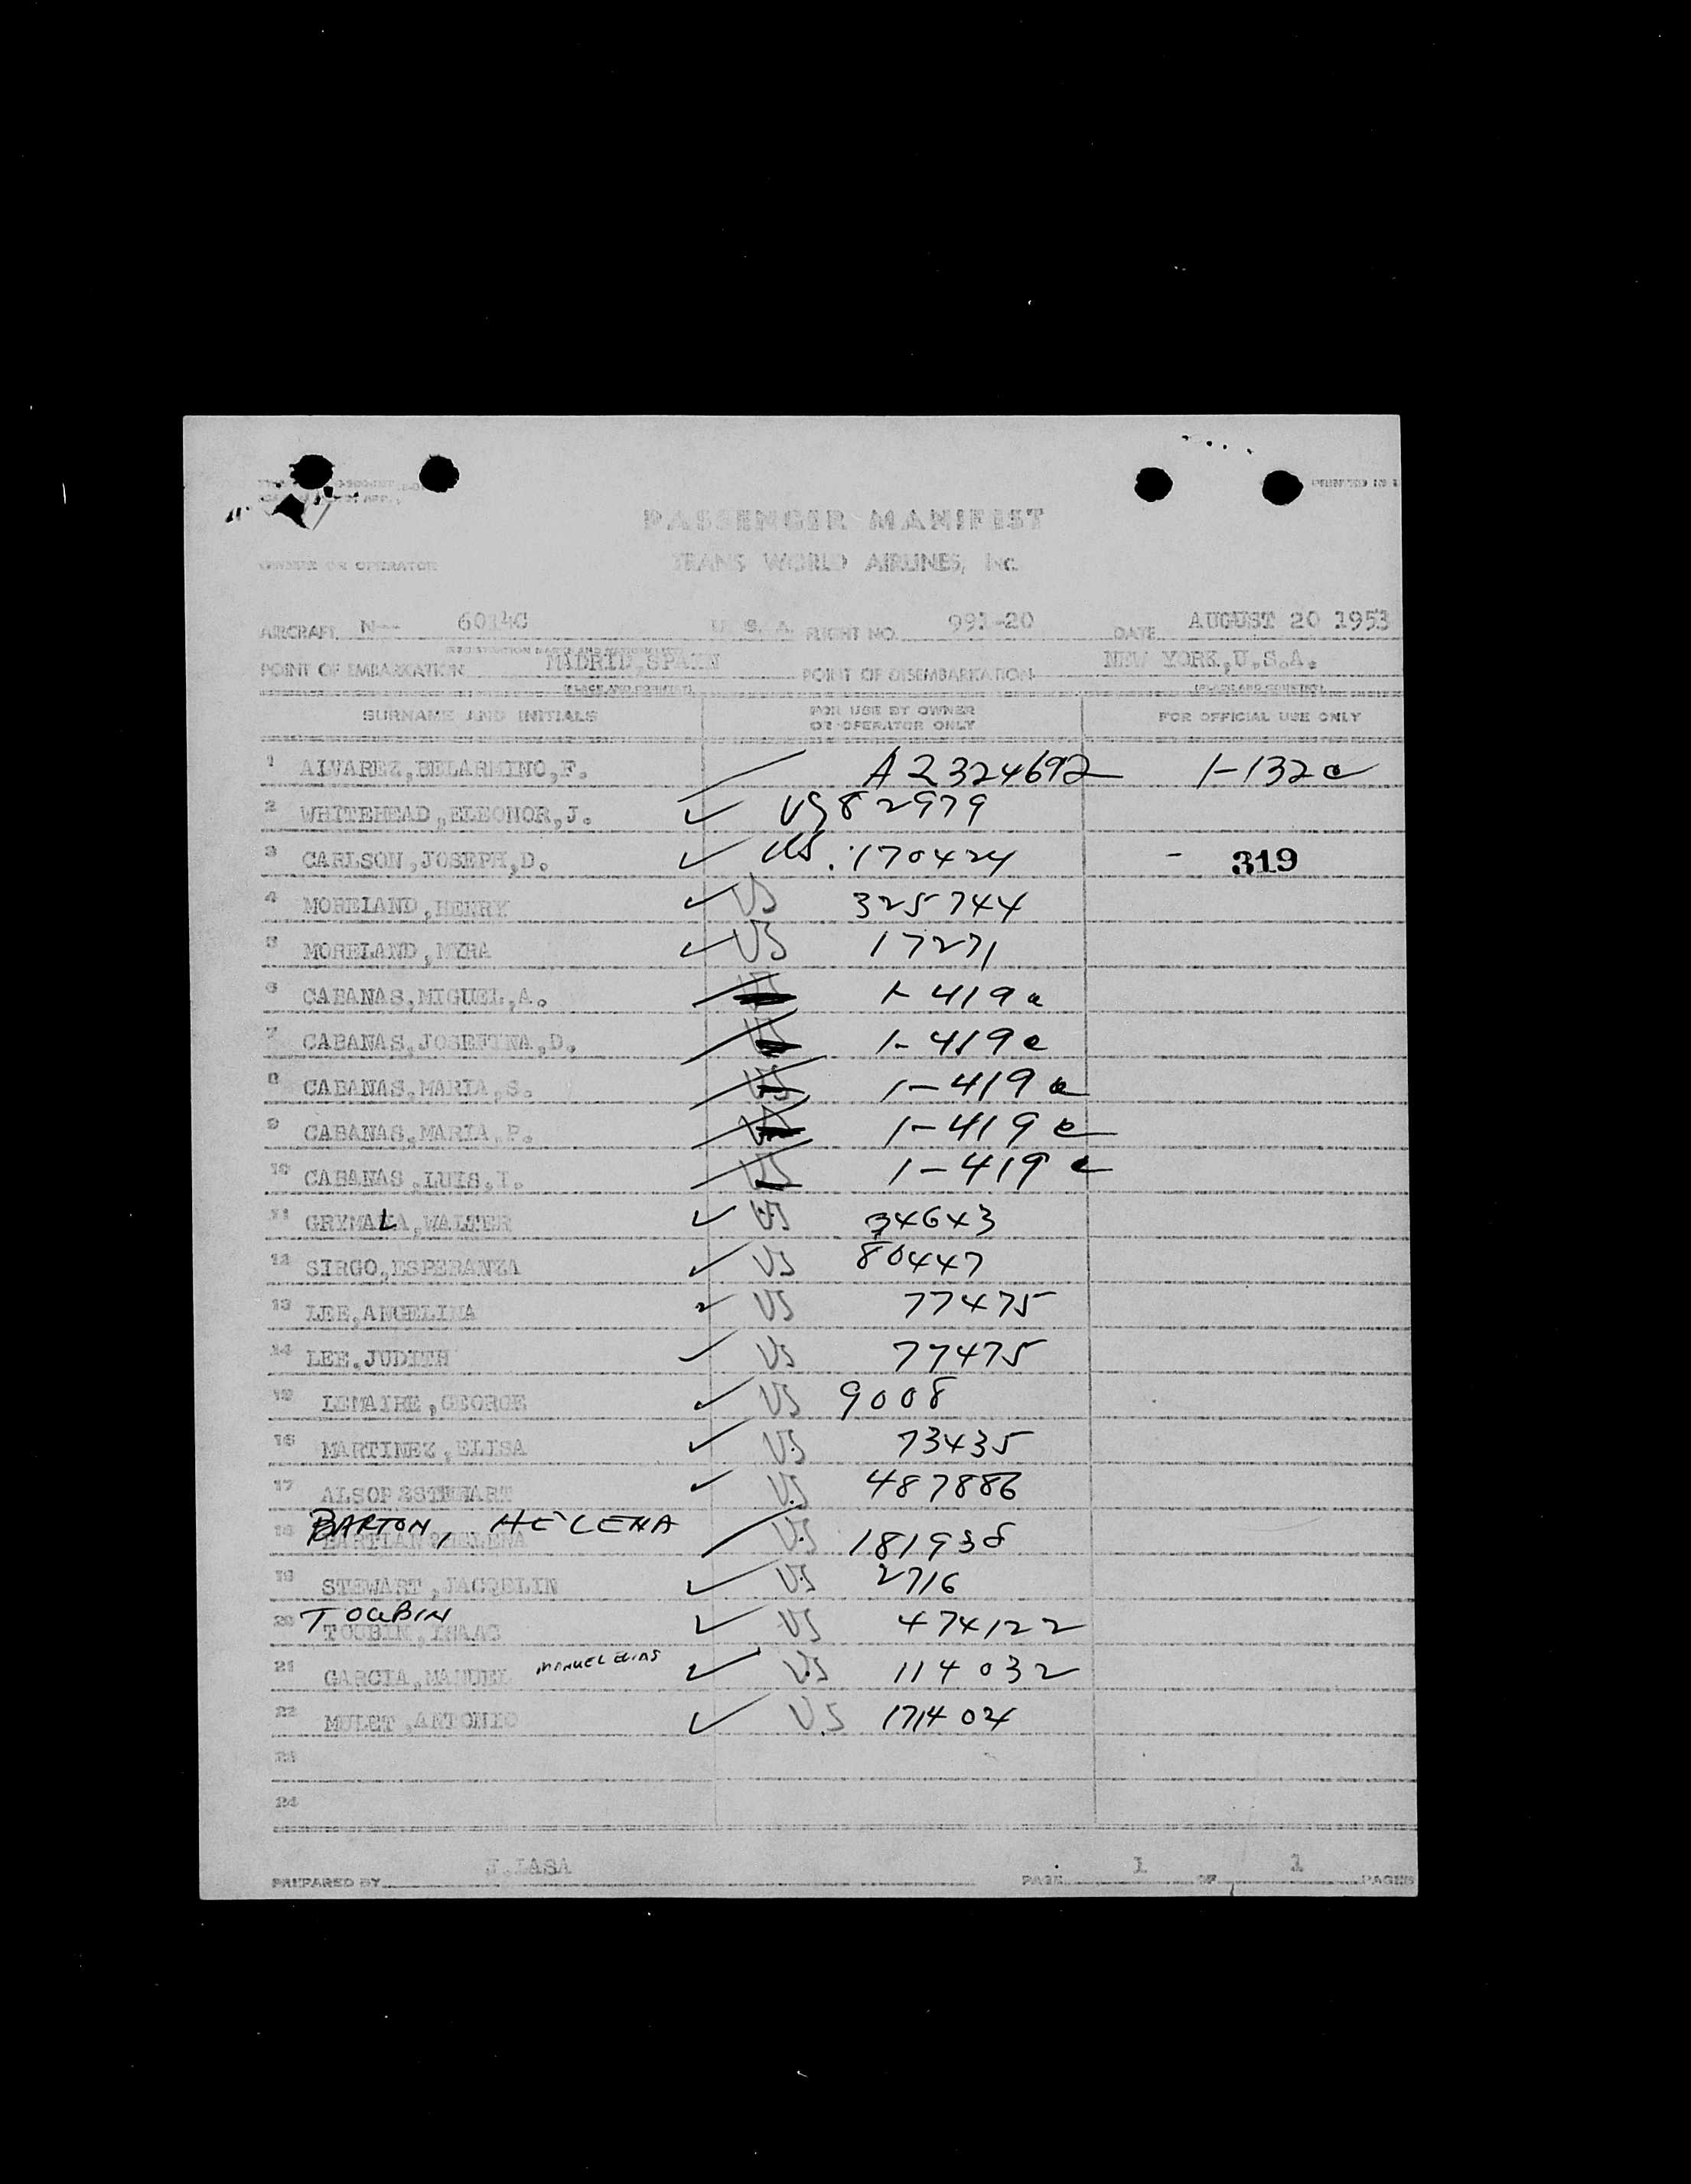 PASSENGER MANIFEST
TRANS WORLD AIRLINES, INC.
OWNER OR OPERATOR
AIRCRAFT N-- 6014C U. S. A. FLIGHT NO. 991-20 DATE AUGUST 20 1953
(REGISTRATION MARKS AND NATIONALITY)
POINT OF EMBARKATION MADRID,SPAIN POINT OF DISEMBARKATION NEW YORK,U.S.A.
(PLACE AND COUNTRY) (PLACE AND COUNTRY)
SURNAME AND INITIALS FOR USE BY OWNER OR OPERATOR ONLY FOR OFFICIAL USE ONLY
1 ALVAREZ,BELARMINO,F. A2324692 1-132a
2 WHITEHEAD,ELEONOR,J. US 82979
3 CARLSON,JOSEPH,D. US. 170424 - 319
4 MORELAND,HENRY US 325744
5 MORELAND,MYRA US 17271
6 CABANAS,MIGUEL,A. US 1-419a
7 CABANAS,JOSEFINA,D. US 1-419a
8 CABANAS,MARIA,S. US 1-419a
9 CABANAS,MARIA,P. US 1-419a
10 CABANAS,LUIS,I. US 1-419a
11 GRYMALA,WALTER US 34643
12 SIRGO,ESPERANZA US 80447
13 LEE,ANGELINA US 77475
14 LEE,JUDITH US 77475
15 LEMAIRE,GEORGE US 9008
16 MARTINEZ,ELISA US 73435
17 ALSOP&STEWART US 487886
BARTON, HELENA
18 US 181938
19 STEWART,JACQELIN US 2716
TOUBIN
20 TOUBIN,ISAAC US 474122
21 GARCIA,MANUEL MANUEL ELIAS US 114032
22 MULET,ANTONIO US 171404
23
24
PREPARED BY J.IASA PAGE 1 OF 1 PAGES